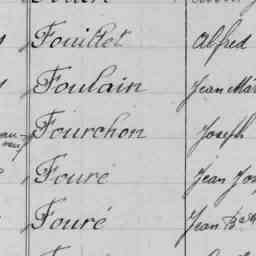 Fouillet Alfred
Foulain Jean Mar
Fourchon Joseph
Fouré Jean Jos
Fouré Jean Bte